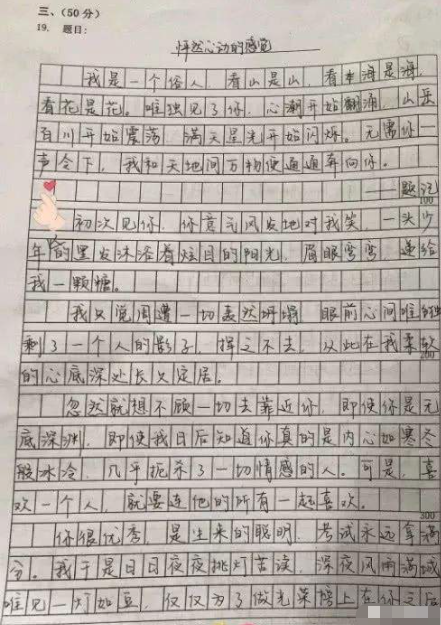 三、(50分)
19. 题目:
怦然心动的感觉
我是一个俗人,看山是山,看海是海,
看花是花。唯独见了你,心潮开始翻涌,山岳
百川开始震荡,满天星光开始闪烁。无需你一
声令下,我和天地间万物便通通奔向你。
——题记
100
初次见你,你意气风发地对我笑,一头少
年的黑发沐浴着炫目的阳光,眉眼弯弯,递给
我一颗糖。
我只觉周遭一切轰然坍塌,眼前心间唯独
剩了一个人的影子,挥之不去,从此在我柔软
200
的心底深处长久定居。
忽然就想不顾一切去靠近你,即使你是无
底深渊,即使我日后知道你真的是内心如寒冬
般冰冷,几乎扼杀了一切情感的人。可是,喜
欢一个人,就要连他的所有一起喜欢。
300
你很优秀,是生来的聪明,考试永远拿满
分。我于是日日夜夜挑灯苦读,深夜风雨满城
唯见一灯如豆,仅仅为了做光荣榜上在你之后